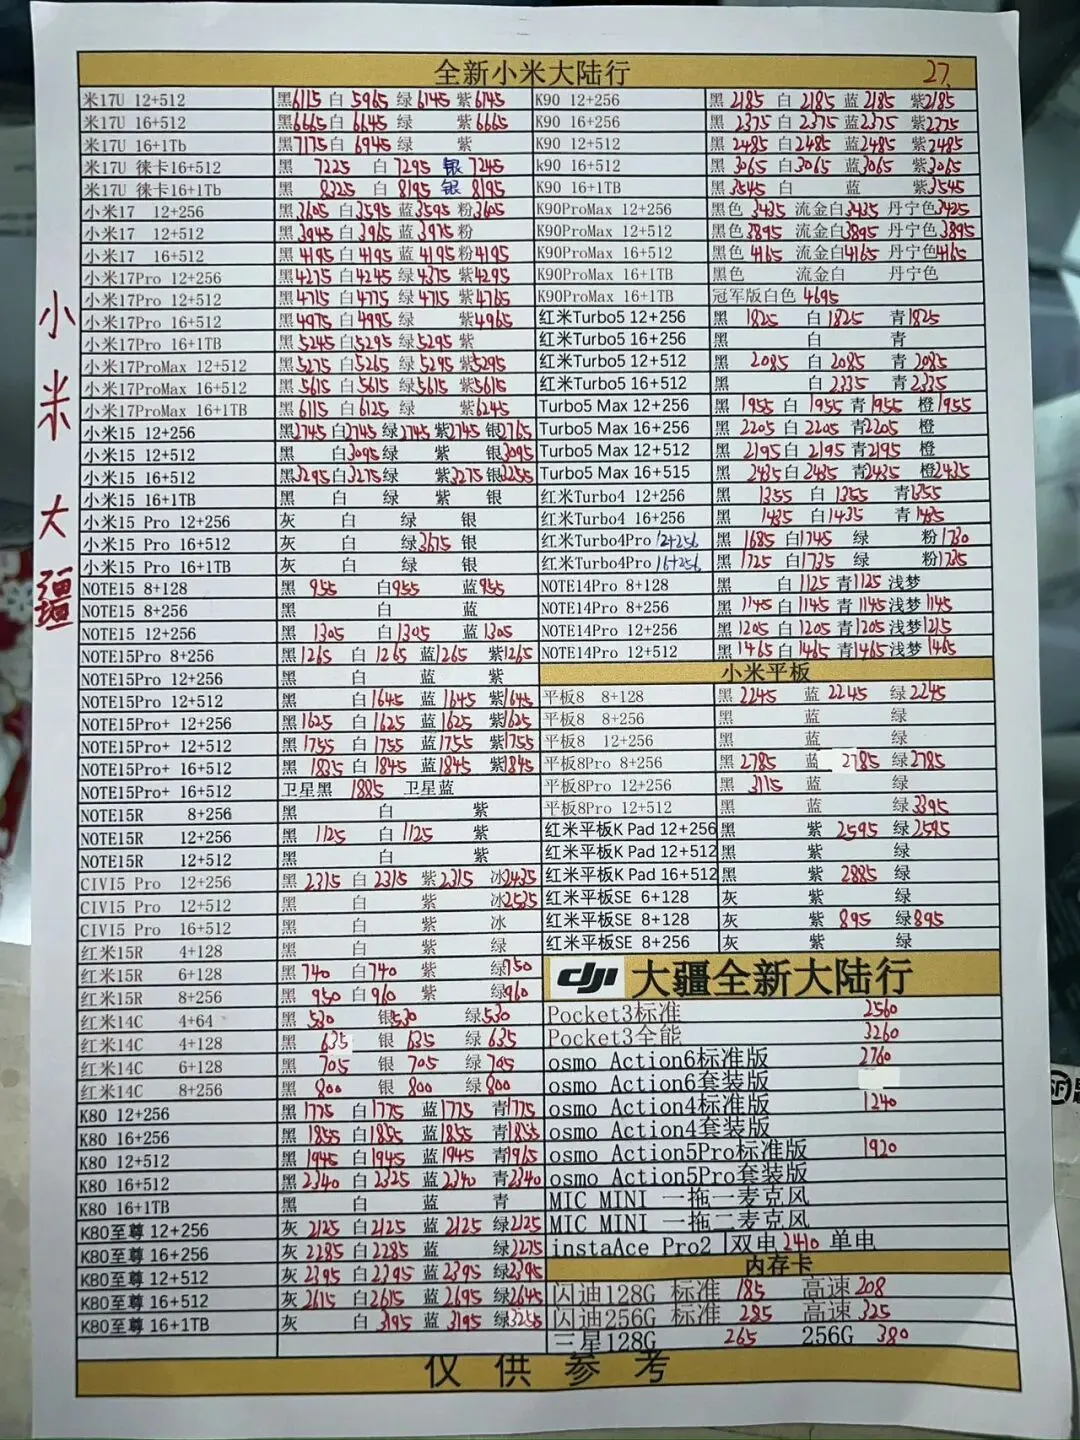 全新小米大陆行 27.
小米大疆
米17U 12+512 黑6115 白5965 绿6145 紫6145
米17U 16+512 黑6665 白6645 绿 紫6665
米17U 16+1Tb 黑7175 白6945 绿 紫
米17U 徕卡16+512 黑7225 白7295 银7245
米17U 徕卡16+1Tb 黑8325 白8195 银8195
小米17 12+256 黑3605 白3595 蓝3595 粉3605
小米17 12+512 黑3945 白3965 蓝3975 粉
小米17 16+512 黑4195 白4195 蓝4195 粉4195
小米17Pro 12+256 黑4275 白4245 绿4375 紫4295
小米17Pro 12+512 黑4715 白4775 绿4715 紫4765
小米17Pro 16+512 黑4975 白4995 绿 紫4965
小米17Pro 16+1TB 黑5245 白5295 绿5295 紫
小米17ProMax 12+512 黑5275 白5265 绿5295 紫5295
小米17ProMax 16+512 黑5615 白5615 绿5615 紫5615
小米17ProMax 16+1TB 黑6115 白6125 绿 紫6245
小米15 12+256 黑2745 白2745 绿2745 紫2745 银2765
小米15 12+512 黑 白3095 绿 紫 银3095
小米15 16+512 黑3295 白3275 绿 紫3275 银3255
小米15 16+1TB 黑 白 绿 紫 银
小米15 Pro 12+256 灰 白 绿 银
小米15 Pro 16+512 灰 白 绿3675 银
小米15 Pro 16+1TB 灰 白 绿 银
NOTE15 8+128 黑955 白955 蓝955
NOTE15 8+256 黑 白 蓝
NOTE15 12+256 黑1305 白1305 蓝1305
NOTE15Pro 8+256 黑1265 白1265 蓝1265 紫1265
NOTE15Pro 12+256 黑 白 蓝 紫
NOTE15Pro 12+512 黑 白1645 蓝1645 紫1645
NOTE15Pro+ 12+256 黑1625 白1625 蓝1625 紫1625
NOTE15Pro+ 12+512 黑1755 白1755 蓝1755 紫1755
NOTE15Pro+ 16+512 黑1835 白1845 蓝1845 紫1845
NOTE15Pro+ 16+512 卫星黑 1885 卫星蓝
NOTE15R 8+256 黑 白 紫
NOTE15R 12+256 黑1125 白1125 紫
NOTE15R 12+512 黑 白 紫
CIVI5 Pro 12+256 黑2315 白2315 紫2315 冰2435
CIVI5 Pro 12+512 黑 白 紫 冰2535
CIVI5 Pro 16+512 黑 白 紫 冰
红米15R 4+128 黑 白 紫 绿
红米15R 6+128 黑740 白740 紫 绿750
红米15R 8+256 黑950 白960 紫 绿960
红米14C 4+64 黑530 银530 绿530
红米14C 4+128 黑635 银635 绿635
红米14C 6+128 黑705 银705 绿705
红米14C 8+256 黑800 银800 绿800
K80 12+256 黑1775 白1775 蓝1775 青1775
K80 16+256 黑1855 白1855 蓝1855 青1855
K80 12+512 黑1945 白1945 蓝1945 青1965
K80 16+512 黑2340 白2325 蓝2340 青2340
K80 16+1TB 黑 白 蓝 青
K80至尊 12+256 灰2125 白2125 蓝2125 绿2125
K80至尊 16+256 灰2285 白2285 蓝 绿2275
K80至尊 12+512 灰2395 白2395 蓝2395 绿2395
K80至尊 16+512 灰2615 白2615 蓝2695 绿2645
K80至尊 16+1TB 灰 白3195 蓝3195 绿3255
K90 12+256 黑2185 白2185 蓝2185 紫2185
K90 16+256 黑2375 白2375 蓝2375 紫2375
K90 12+512 黑2485 白2485 蓝2485 紫2485
k90 16+512 黑3065 白3065 蓝3065 紫3065
K90 16+1TB 黑3545 白 蓝 紫3545
K90ProMax 12+256 黑色3435 流金白3435 丹宁色3425
K90ProMax 12+512 黑色3895 流金白3895 丹宁色3895
K90ProMax 16+512 黑色4165 流金白4165 丹宁色4165
K90ProMax 16+1TB 黑色 流金白 丹宁色
K90ProMax 16+1TB 冠军版白色 4695
红米Turbo5 12+256 黑1825 白1825 青1825
红米Turbo5 16+256 黑 白 青
红米Turbo5 12+512 黑2085 白2085 青2085
红米Turbo5 16+512 黑 白2335 青2335
Turbo5 Max 12+256 黑1955 白1955 青1955 橙1955
Turbo5 Max 16+256 黑2205 白2205 青2205 橙
Turbo5 Max 12+512 黑2195 白2195 青2195 橙
Turbo5 Max 16+515 黑2435 白2435 青2435 橙2435
红米Turbo4 12+256 黑1355 白1355 青1355
红米Turbo4 16+256 黑1435 白1435 青1435
红米Turbo4Pro 12+256 黑1685 白1745 绿 粉1730
红米Turbo4Pro 16+256 黑1725 白1735 绿 粉1735
NOTE14Pro 8+128 黑 白1125 青1125 浅梦
NOTE14Pro 8+256 黑1145 白1145 青1145 浅梦1145
NOTE14Pro 12+256 黑1205 白1205 青1205 浅梦1215
NOTE14Pro 12+512 黑1465 白1465 青1465 浅梦1465
小米平板
平板8 8+128 黑2245 蓝2245 绿2245
平板8 8+256 黑 蓝 绿
平板8 12+256 黑 蓝 绿
平板8Pro 8+256 黑2785 蓝2785 绿2785
平板8Pro 12+256 黑3115 蓝 绿
平板8Pro 12+512 黑 蓝 绿3395
红米平板K Pad 12+256 黑 紫2595 绿2595
红米平板K Pad 12+512 黑 紫 绿
红米平板K Pad 16+512 黑 紫2885 绿
红米平板SE 6+128 灰 紫 绿
红米平板SE 8+128 灰 紫895 绿895
红米平板SE 8+256 灰 紫 绿
dji 大疆全新大陆行
Pocket3标准 2560
Pocket3全能 3260
osmo Action6标准版 2760
osmo Action6套装版
osmo Action4标准版 1240
osmo Action4套装版
osmo Action5Pro标准版 1920
osmo Action5Pro套装版
MIC MINI 一拖一麦克风
MIC MINI 一拖二麦克风
instaAce Pro2 双电2410 单电
内存卡
闪迪128G 标准 185 高速208
闪迪256G 标准 285 高速325
三星128G 265 256G 380
仅供参考
SF